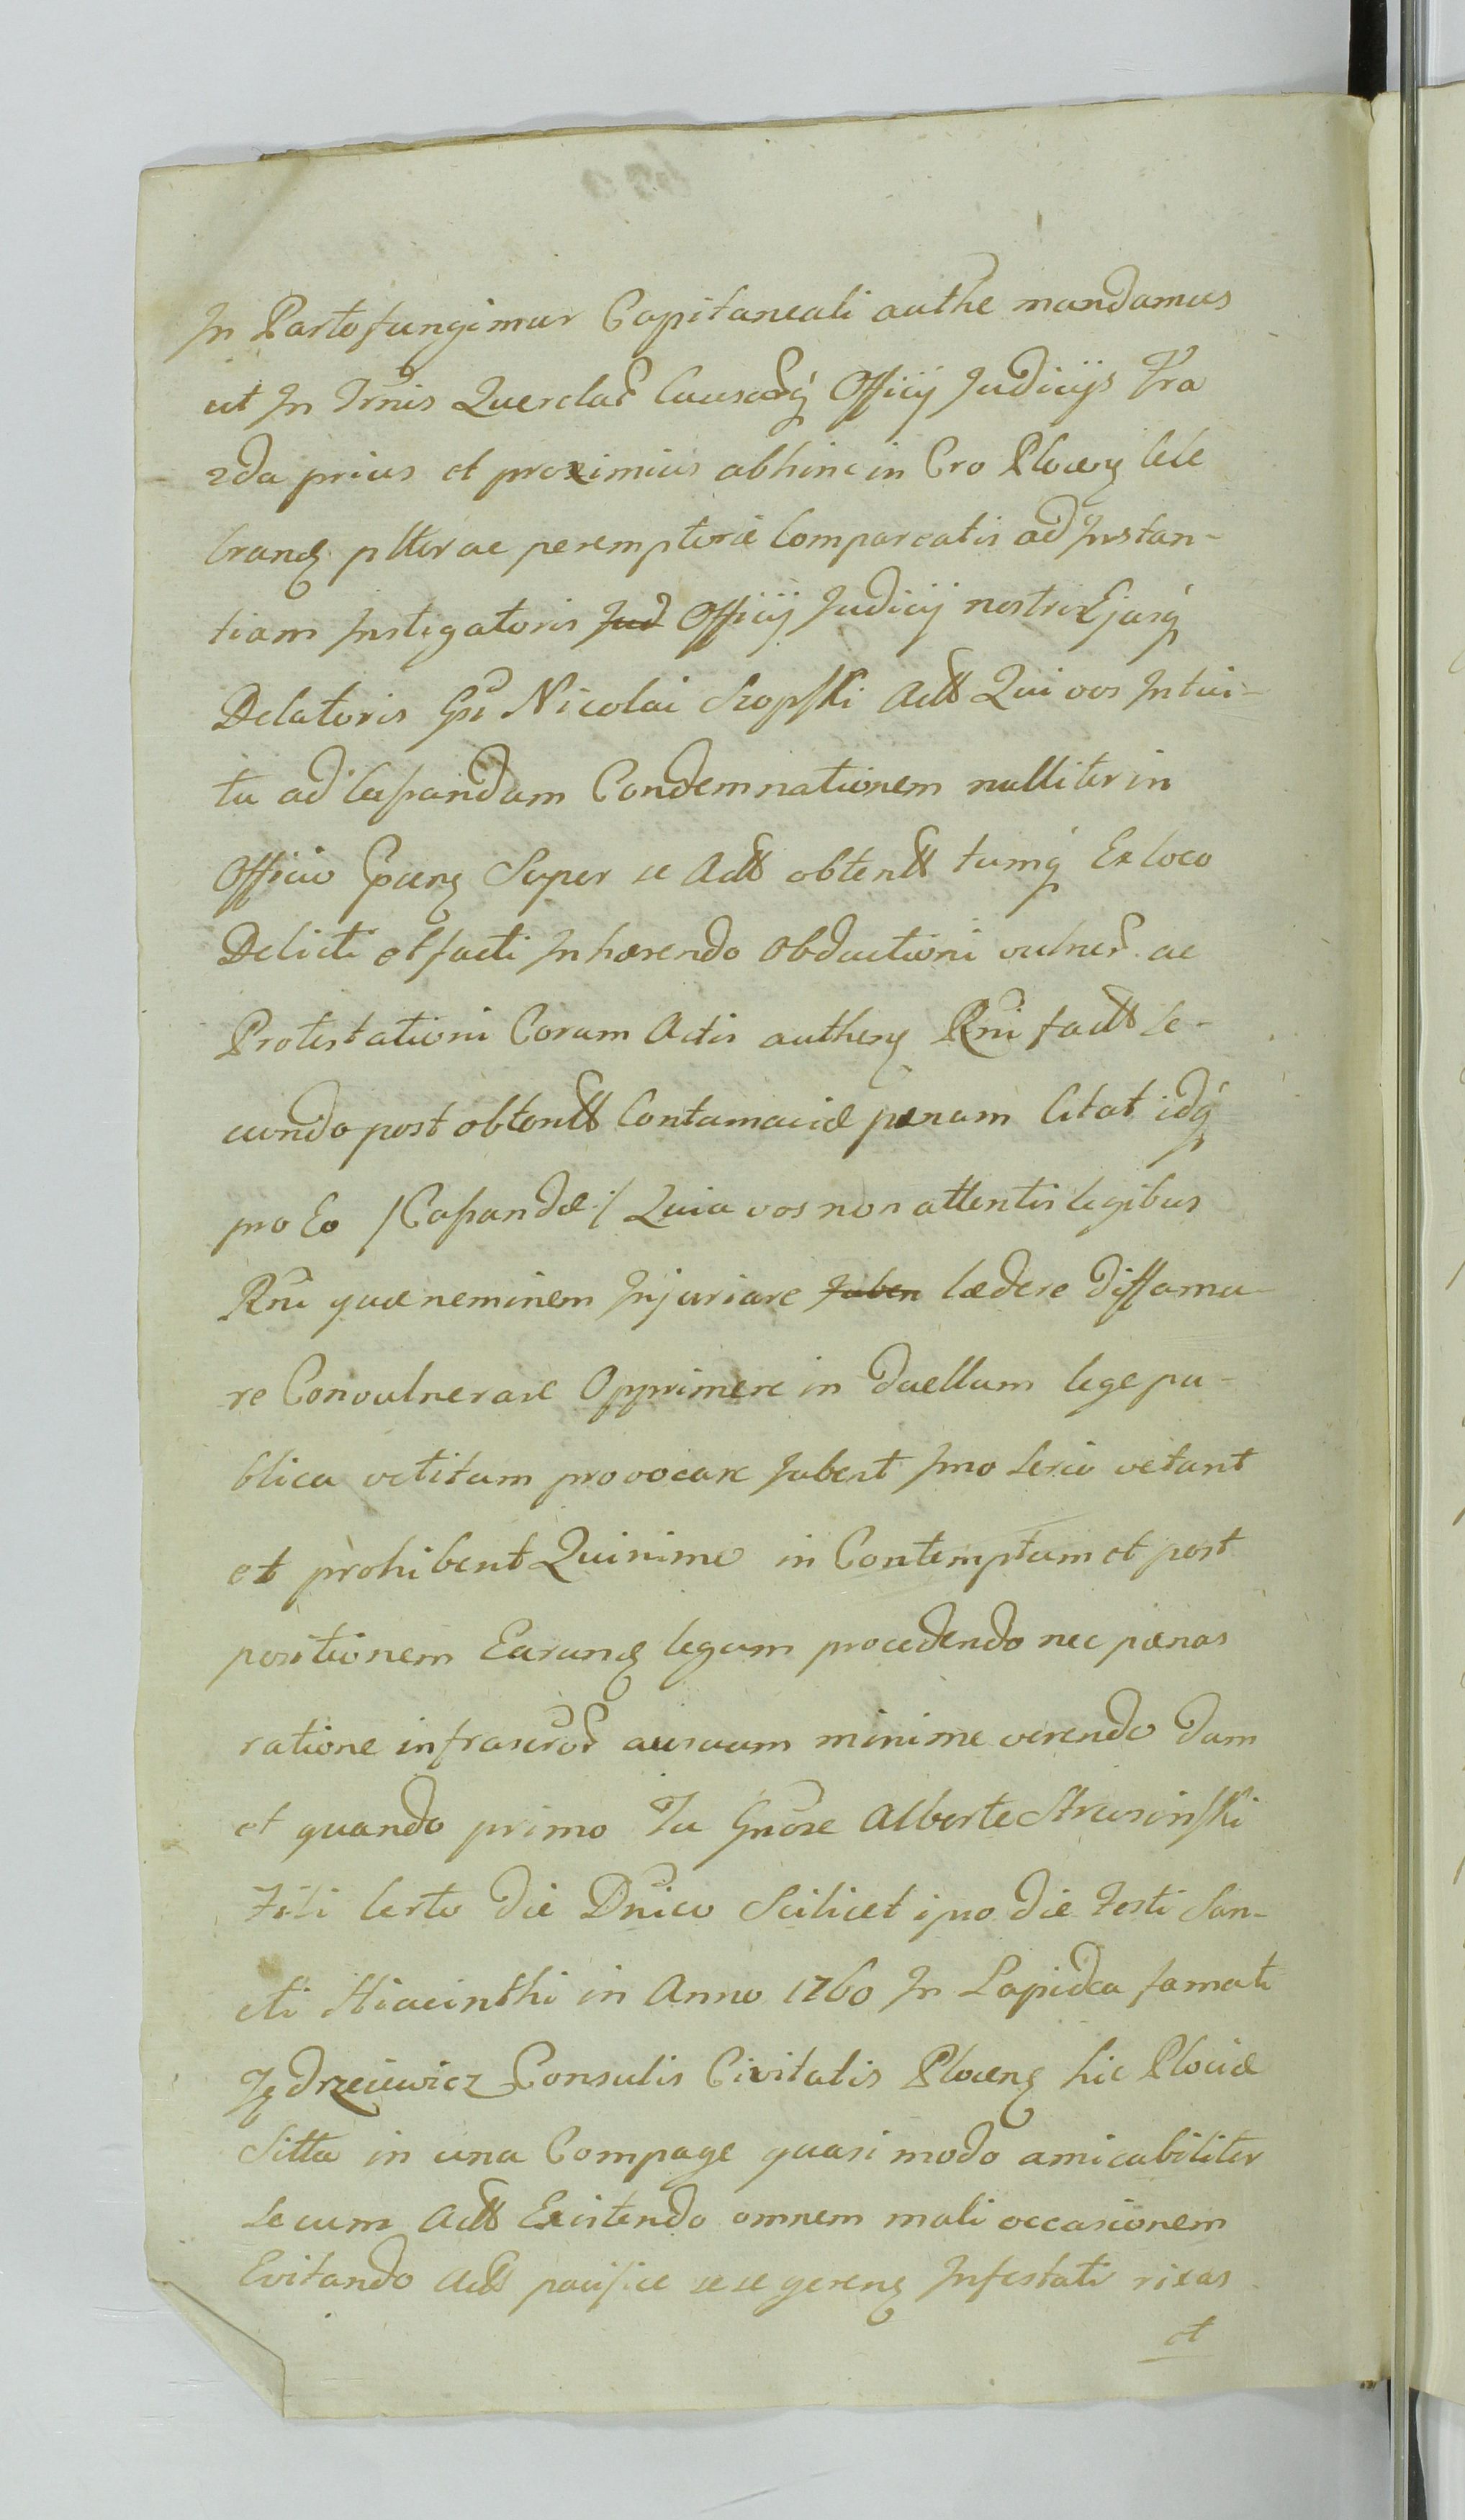 In Parto fungimur Capitaneali authe mandamus
ut In Trnis Querelar Causarq Officij Judicijs Fra
2da prius et proximius abhinc in Cro Plocen Cele
brand plter ac peremptorie Compareatis ad Instan-
tiam Instigatoris Jud Officij Judicij nostri Ejusq
Delatoris Gsi Nicolai Szopski Act Qui vos Intui-
tu ad Cassandam Condemnationem nulliter in
Officio Pcens Super se Act obtent tumq Ex loco
Delicti et facti Inhærendo Obductioni vulner ac
Protestationi Coram Actis authen Rni fact Se-
cundo post obtent Contumaciæ pænam Citat idq
pro Eo /Cassandæ:/ Quia vos non attentis legibus
Rni quæ neminem Injuriare Juben lædere diffama-
re Convulnerare Opprimere in duellum lege pu-
blica vetitum provocare Jubent Imo serio vetant
et prohibent Quinimo in Contemptum et post
positionem Earund legum procedendo nec pænas
ratione infrascror ausuum minime verendo dum
et quando primo Tu Gnose Alberte Strusinski
Titi Certo die Dnico Scilicet ipso die Festi San-
cti Hiacinthi in Anno 1760 In Lapidea famati
Jędrzeiewicz Consulis Civitatis Plocens hic Plociæ
Sitta in una Compage quasi modo amicabiliter
Secum Act Existendo omnem mali occasionem
Evitando Act pacifice sese gerens Infestati rixas
et